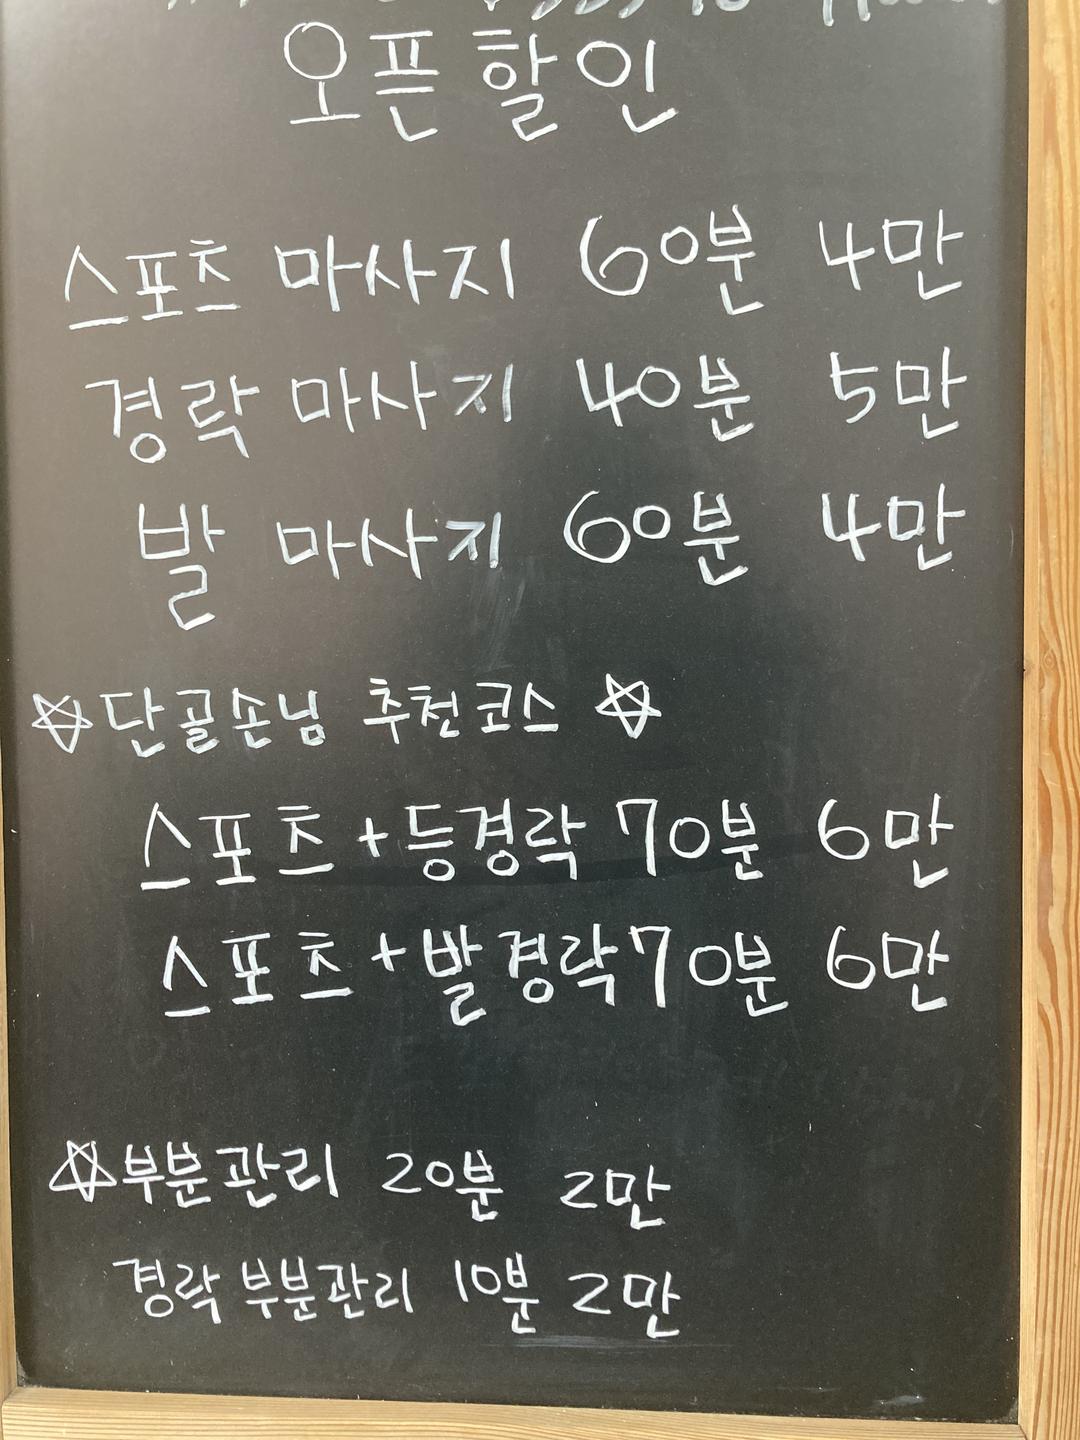 오픈할인
스포츠 마사지 60분 4만
경락 마사지 40분 5만
발 마사지 60분 4만
☆단골손님 추천코스 ☆
스포츠+등경락 70분 6만
스포츠+발경락 70분 6만
☆부분관리 20분 2만
경락 부분관리 10분 2만